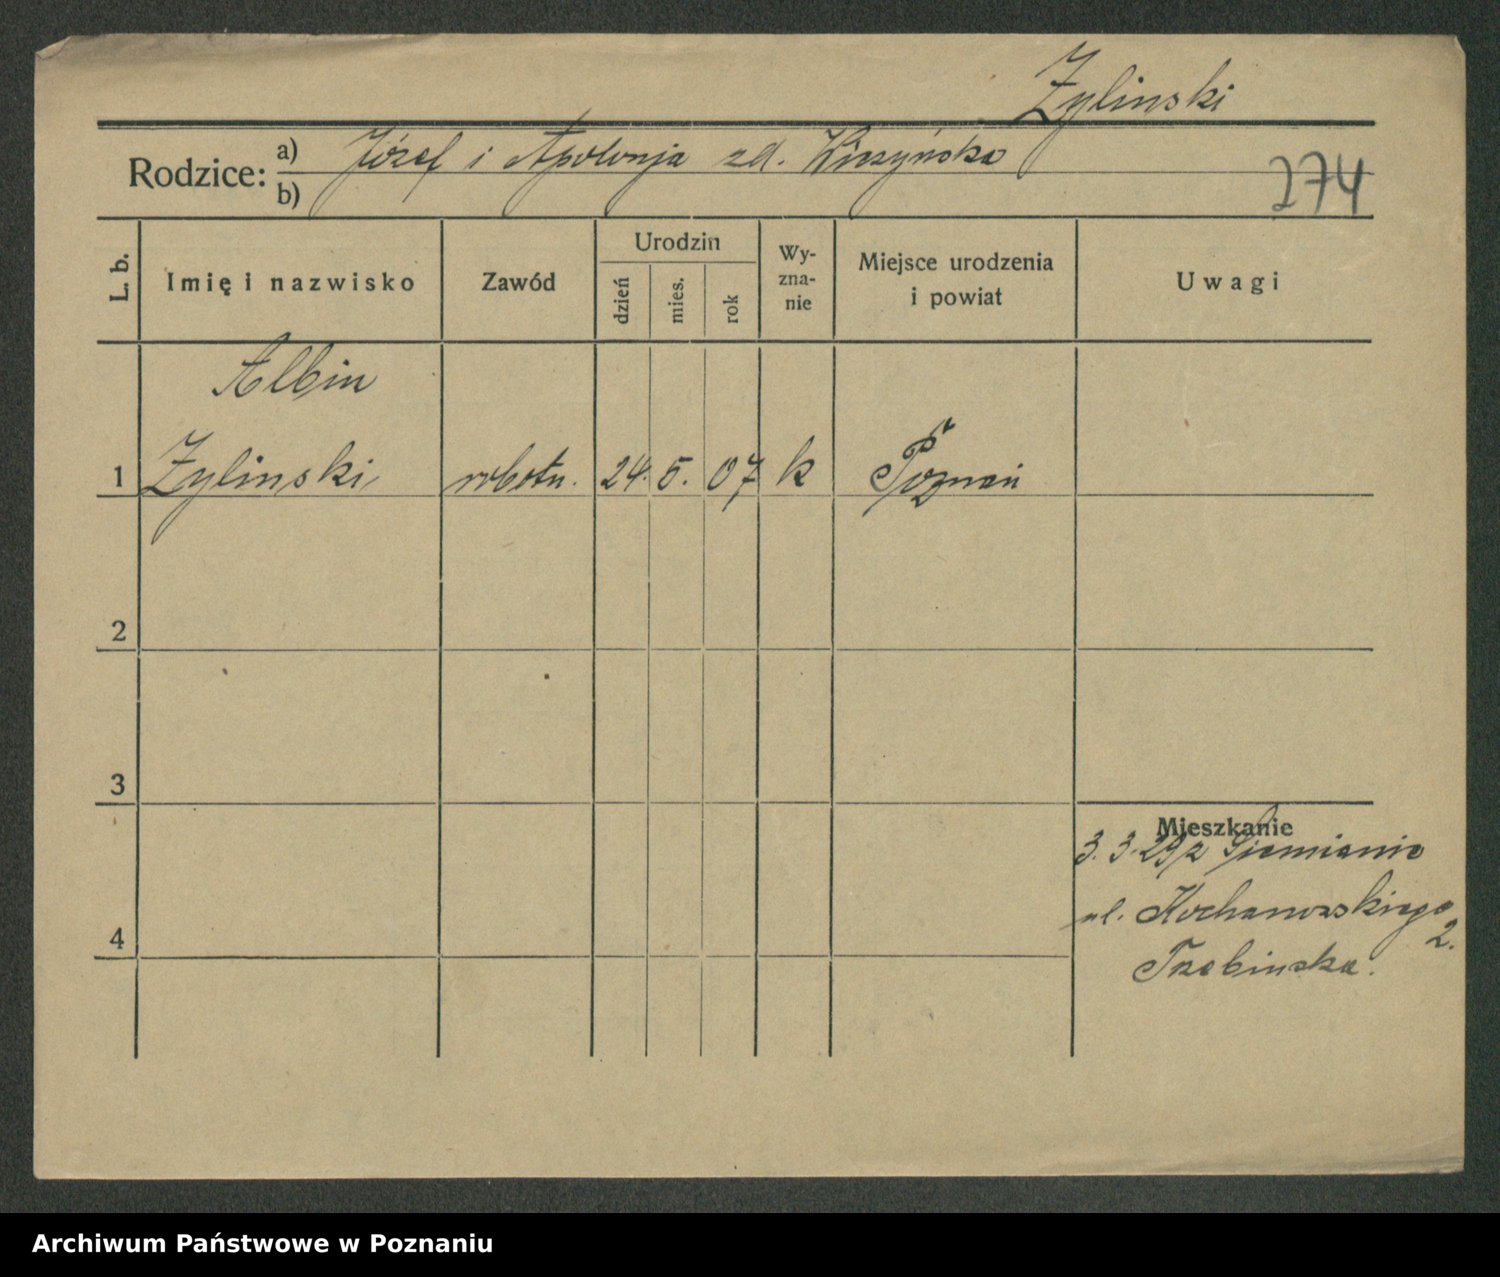 Zylinski
Rodzice: a) Józef i Apolonja zd.
b)
274
L. b.
Imię i nazwisko
Zawód
Urodzin
dzień
mies.
rok
Wy-
zna-
nie
Miejsce urodzenia
i powiat
Uwagi
Albin
1 Zylinski robotn. 24. 5. 07 k Poznań
2
3
Mieszkanie
3. 3. 29 z
ul. Kochanowskiego
2.
4
Trzebinska.
Archiwum Państwowe w Poznaniu